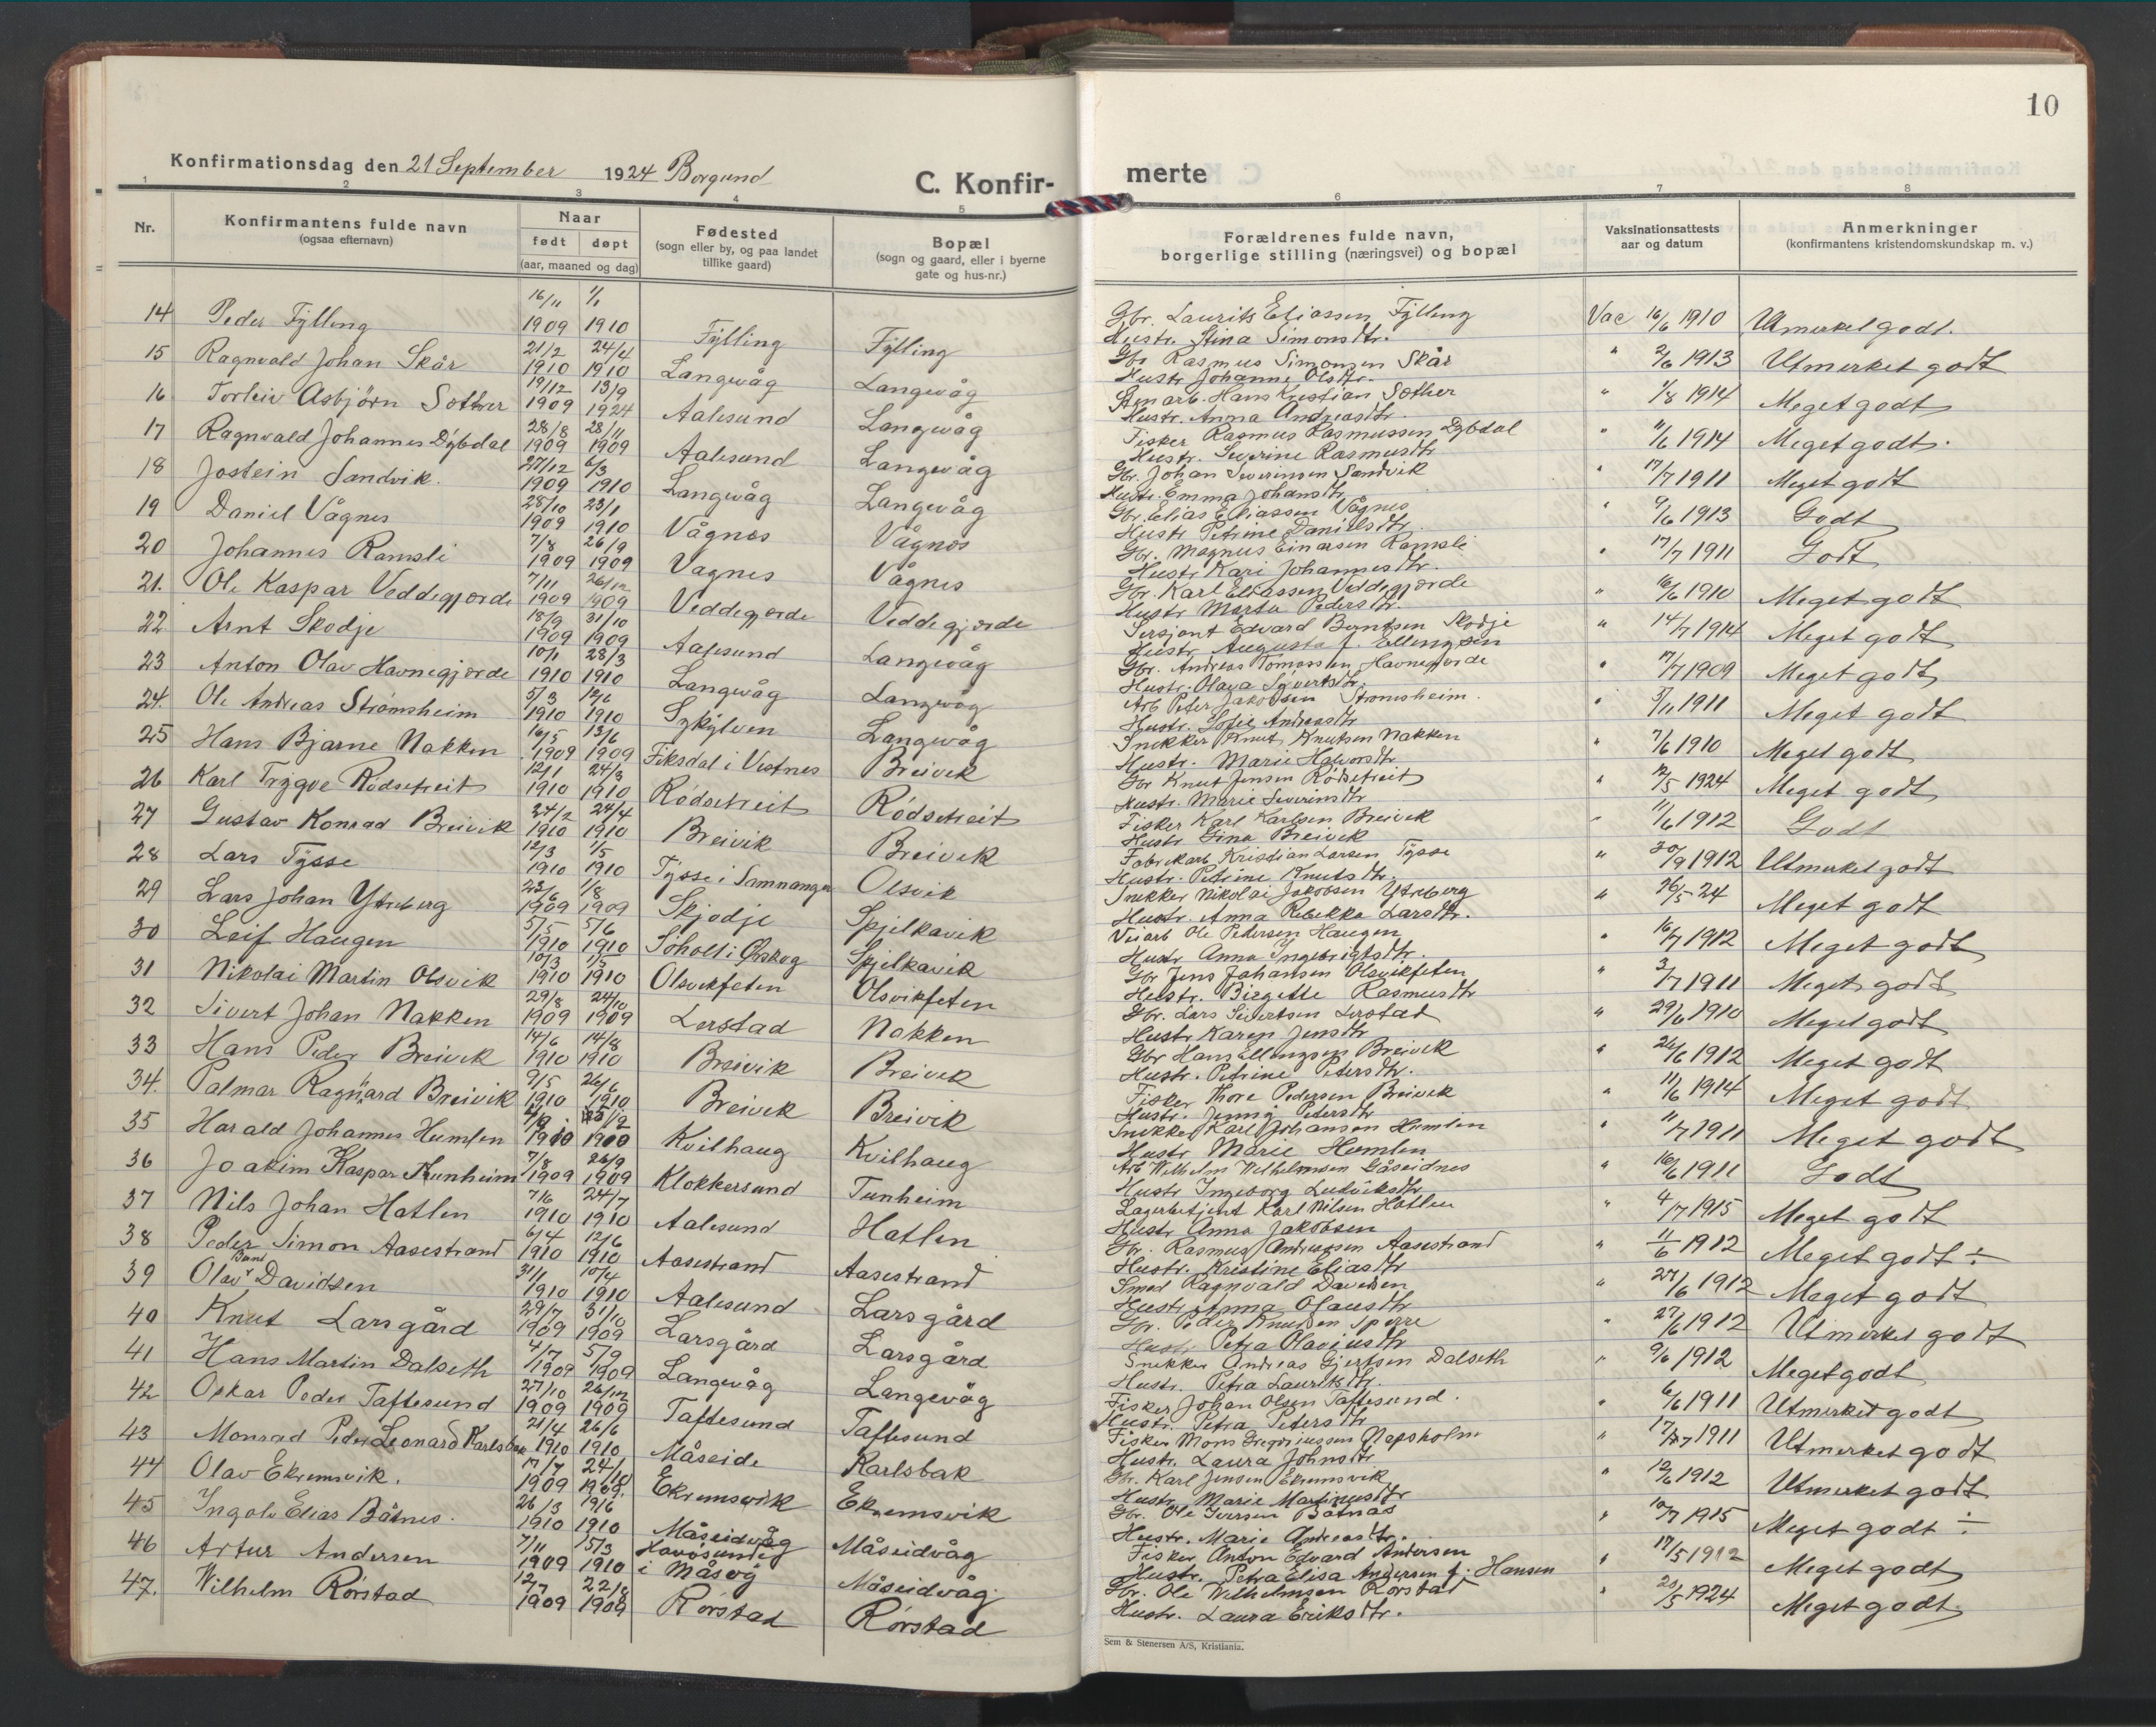 10
Konfirmationsdag den 21 September 1924 Borgund
C. Konfir-
merte
1 2 3 4 5 6 7 8
Nr.
Konfirmantens fulde navn
(ogsaa efternavn)
Naar
født døpt
(aar, maaned og dag)
Fødested
(sogn eller by, og paa landet
tillike gaard)
Bopæl
(sogn og gaard, eller i byerne
gate og hus-nr.)
Forældrenes fulde navn,
borgerlige stilling (næringsvei) og bopæl
Vaksinationsattests
aar og datum
Anmerkninger
(konfirmantens kristendomskundskap m. v.)
14 Peder Fylling 16/11 1909 1/1 1910 Fylling Fylling
Gbr. Laurits Eliassen Fylling Vac 16/6 1910 Utmerket godt.
Hustr. Stina Simonsdtr.
15 Ragnvald Johan Skår 21/2 1910 24/4 1910 Langevåg Langevåg
Gbr Rasmus Simonsen Skår " 2/6 1913 Utmerket godt
Hustr Johanne Olsdtr.
16 Torleiv Asbjörn Sæther 19/12 1909 13/9 1924 Aalesund Langevåg
Hans Kristian Sæther " 1/8 1914 Meget godt
Hustr. Anna Andreasdtr.
17 Ragnvald Johannes Dybdal 28/8 1909 28/11 1909 Aalesund Langevåg
Fisker Rasmus Rasmussen Dybdal " 11/6 1914 Meget godt.
Hustr. Severine Rasmusdtr
18 Jostein Sandvik. 27/12 1909 6/3 1910 Langevåg Langevåg
Gbr. Johan Severinsen Sandvik " 17/7 1911 Meget godt
Hustr. Emma Johansdtr.
19 Daniel Vågnes 28/10 1909 23/1 1910 Vågnes Vågnes
Gbr. Elias Eliassen Vågnes " 9/6 1913 Godt
Hustr Petrine Danielsdtr.
20 Johannes Ramsli 7/8 1909 26/9 1909 Vagnes Vågnes
Gbr. Magnus Einarsen Ramsli " 17/7 1911 Godt
Hustr Kari Johannesdtr.
21. Ole Kaspar Veddegjerde 7/11 1909 26/12 1909 Veddegjerde Veddegjerde
Gbr. Karl Eliassen Veddegjerde " 16/6 1910 Meget godt
Hustr Marta Pedersdtr.
22 Arnt Skodje 18/9 1909 31/10 1909 Aalesund Langevåg
Sersjant Edvard Berntsen Skodje " 14/7 1914 Meget godt
Hustr Augusta f. Ellingsen
23 Anton Olav Havnegjerde 10/1 1910 28/3 1910 Langevåg Langevåg
Gbr. Andreas Tomassen Havnegjerde " 17/7 1909 Meget godt
Hustr. Olava Sivertsdtr.
24. Ole Andreas Strømsheim 5/3 1910 12/6 1910 Sykylven Langevåg
Arb Peter Jakobsen Strømsheim. " 3/11 1911 Meget godt
Hustr. Sofie Andreasdtr
25 Hans Bjarne Nakken 16/5 1909 13/6 1909 Fiksdal i Vestnes Breivik
Snekker Knut Knutsen Nakken " 7/6 1910 Meget godt
Hustr. Marie Halvorsdtr
26 Karl Trygve Rødsetreit 12/1 1910 24/3 1910 Rødsetreit Rødsetreit
Gbr Knut Jensen Rødsetreit " 12/5 1924 Meget godt
Hustr. Marie Severinsdtr
27 Gustav Konrad Breivik 24/2 1910 24/4 1910 Breivik Breivik
Fisker Karl Karlsen Breivik " 11/6 1912 Godt
Hustr Gina Breivik
28 Lars Tysse 12/3 1910 1/5 1910 Tysse i Samnanger Olsvik
Fabrikarb Kristian Larsen Tysse " 30/9 1912 Utmerket godt
Hustr. Petrine Knutsdtr.
29 Lars Johan Ytreberg 23/6 1909 1/8 1909 Skjodje Spjelkavik
Snekker Nikolai Jakobsen Ytreberg " 26/5 24 Meget godt
Hustr. Anna Rebekka Larsdtr.
30 Leif Haugen 5/5 1910 5/6 1910 Søholt i Ørskog Spjelkavik
Veiarb Ole Pedersen Haugen " 16/7 1912 Meget godt
Hustr Anna Ingebrigtsdtr.
31 Nikolai Martin Olsvik 10/3 1910 1/5 1910 Olsvikfeten Olsvikfeten
Gbr Jens Johansen Olsvikfeten " 3/7 1911 Meget godt
Hustr. Birgitte Rasmusdtr
32 Sivert Johan Nakken 29/8 1909 24/10 1909 Lerstad Nakken
Gbr. Lars Sivertsen Lerstad " 29/6 1910 Meget godt
Hustr Karen Jensdtr
33 Hans Peder Breivik 14/6 1910 14/8 1910 Breivik Breivik
Gbr Hans Ellingsen Breivik " 26/6 1912 Meget godt
Hustr. Petrine Petersdtr.
34. Palmar Ragnvard Breivik 9/5 1910 26/6 1910 Breivik Breivik
Fisker Thore Pedersen Breivik " 11/6 1914 Meget godt
Hustr. Jenny Pedersdtr
35 Harald Johannes Humlen Kvilhaug Kvilhaug
Snekker Karl Johansen Humlen " 11/7 1911 Meget godt
Hustr Marie Humlen
36 Joakim Kaspar Tunheim 7/8 1909 26/9 1909 Klokkersund Tunheim
Arb Wilhelm Wilhelmsen Gåseidnes " 16/6 1911 Godt
Hustr Ingeborg Ludviksdtr
37 Nils Johan Hatlen 7/6 1910 24/7 1910 Aalesund Hatlen
Lagerbetjent Karl Nilsen Hatlen " 4/7 1915 Meget godt
Hustr Anna Jakobsen
38 Peder Simon Aasestrand 6/4 1910 12/6 1910 Aasestrand Aasestrand
Gbr. Rasmus Andreassen Aasestrand " 11/6 1912 Meget godt ÷
Hustr. Kristine Eliasdtr
39 Olav Bernt Davidsen 31/1 1910 10/4 1910 Aalesund Larsgård
Smed Ragnvald Davidsen " 27/6 1912 Meget godt
Hustr Anna Olausdtr
40 Knut Larsgård 29/7 1909 31/10 1909 Larsgård Larsgård
Gbr. Peder Knutsen Sperre " 27/6 1912 Utmerket godt
Hustr Petra Olaviusdtr
41 Hans Martin Dalseth 4/7 1909 5/9 1909 Langevåg Langevåg
Snekker Andreas Gjertsen Dalseth " 9/6 1912 Meget godt
Hustr. Petra Lauritsdtr.
42 Oskar Peder Taftesund 27/10 1909 26/12 1909 Taftesund Taftesund
Fisker Johan Olsen Taftesund. " 6/6 1911 Utmerket godt
Hustr. Petra Petersdtr
43 Monrad Peder Leonard Karlsbak 21/4 1910 26/6 1910 Måseide Karlsbak
Fisker Mons Gregoriussen " 1911 Utmerket godt
Hustr. Laura Johnsdtr
44 Olav Ekremsvik. 17/7 1909 24/10 1909. Ekremsvik Ekremsvik
Gbr. Karl Jensen Ekremsvik " 12/6 1912 Utmerket godt
Hustr. Marie Martinusdtr
45 Ingolv Elias Båtnes. 26/3 1910 19/6 1910 Måseidvåg Måseidvåg
Gbr. Ole Iversen Båtnes " 10/7 1915 Meget godt ÷
Hustr. Marie Andreasdtr.
46 Artur Andersen 7/11 1909 15/3 1910 Havøsund i Måsøy Måseidvåg
Fisker Anton Edvard Andersen " 17/5 1912 Meget godt
Hustr. Petra Elisa Andersen f. Hansen
47. Wilhelm Rørstad 12/7 1909 22/8 1909 Rørstad Rørstad
Gbr. Ole Wilhelmsen Rørstad " 20/5 1924 Meget godt.
Hustr. Laura Eriksdtr.
Sem & Stenersen A/S, Kristiania.